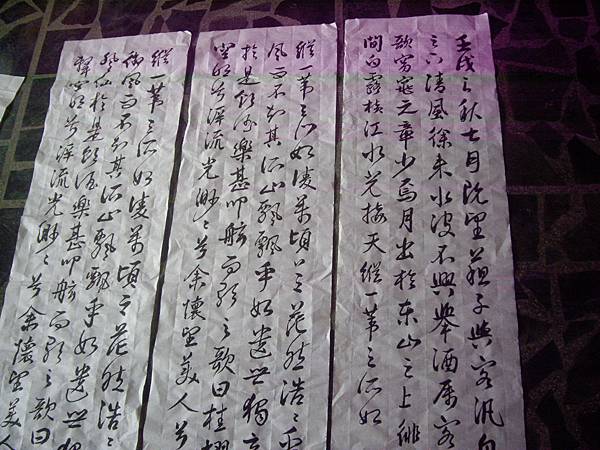 壬戌之秋七月既望蘇子與客汎舟
之下清風徐来水波不興舉酒属客
歌窈窕之章少焉月出於东山之上徘
間白露橫江水光接天縱一葦之所如
縱一葦之所如凌萬頃之茫然浩〻乎
風而不知其所止飄飄乎如遺世獨立
於是飲酒樂甚叩舷而歌之歌曰桂棹
空明兮泝流光渺〻兮余懷望美人兮
縱一葦之所如凌萬頃之茫然浩〻
御風而不知其所止飄飄乎如遺世獨
登仙於是飲酒樂甚叩舷而歌之歌曰
擊空明兮泝流光渺〻兮余懷望美人